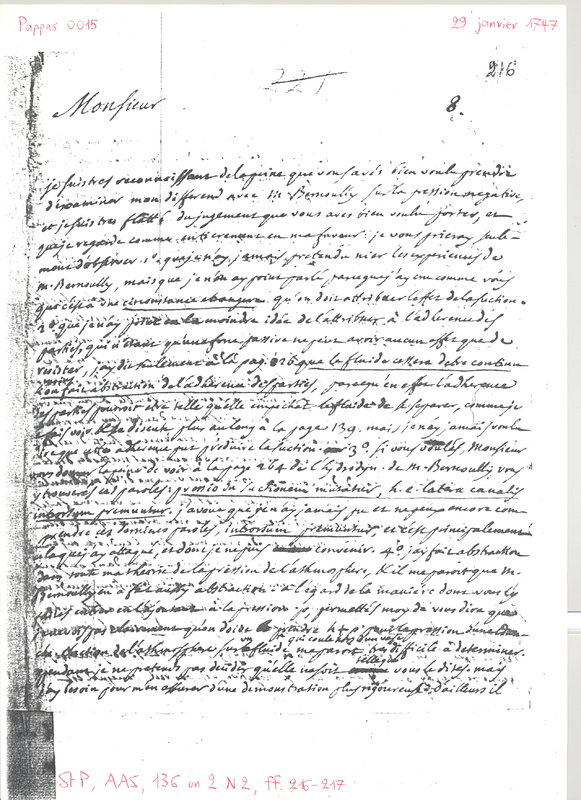 Pappas 0015
29 janvier 1747
221
216
8.
Monsieur
je suis tres reconnoissant de la peine que vous avés bien voulu prendre
d'examiner mon differend avec M. Bernoully sur la pression negative,
et je suis tres flatté du jugement que vous avés bien voulu porter, et
que je regarde comme entierement en ma faveur: je vous prieray seule-
ment d'observer 1.° que je n'ay jamais pretendu nier les experiences de
M. Bernoully, mais que je n'en ay point parlé parceque j'ay cru comme vous
que c'est à une circonstance etrangere qu'on doit attribuer l'effet de la suction.
2.° que je n'ay pas eu la moindre idée de l'attribuer à l'adherence des
parties, qui n'etant qu'une force passive ne peut avoir aucun effet que de
resister, j'ay dit seulement à la pag. 226 que le fluide cessera d'etre continu
si on fait abstraction de l'adherence des parties, parcequ'en effet l'adherence
des parties pourroit etre telle qu'elle empechat le fluide de se separer, comme je
discute plus au long à la page 139. mais je n'ay jamais voulu
dire que l'adherence put produire la suction. 3.° si vous voulés, Monsieur
vous donner la peine de voir à la page 264 de l'hydrodyn. de M. Bernoully, vous
y trouverés ces paroles: pressio in suctionem mutatur, h. e. latera canalis
introrsum premuntur. j'avoue que je n'ay jamais pu et ne peux encore com-
prendre ces dernieres paroles, introrsum premuntur, et c'est principalement
là ce que j'ay attaqué, et dont je ne puis convenir. 4.° j'ay fait abstraction
dans toute ma theorie de la pression de l'atmosphere, & il me paroit que M.
Bernoully en a fait aussy abstraction: à l'egard de la maniere dont vous la
faites entrer en la joutant à la pression p, permettés moy de vous dire que
je ne vois pas clairement qu'on doive joindre
l'action de l'atmosphere sur un fluide qui coule hors d'un vase me paroit tres difficile à determiner.
cependant je ne pretends pas decider qu'elle ne soit telle que vous le dites, mais
j'ay besoin pour m'en assurer d'une demonstration plus rigoureuse. d'ailleurs il
StP, AAS, 136 on 2 N2, ff. 216-217